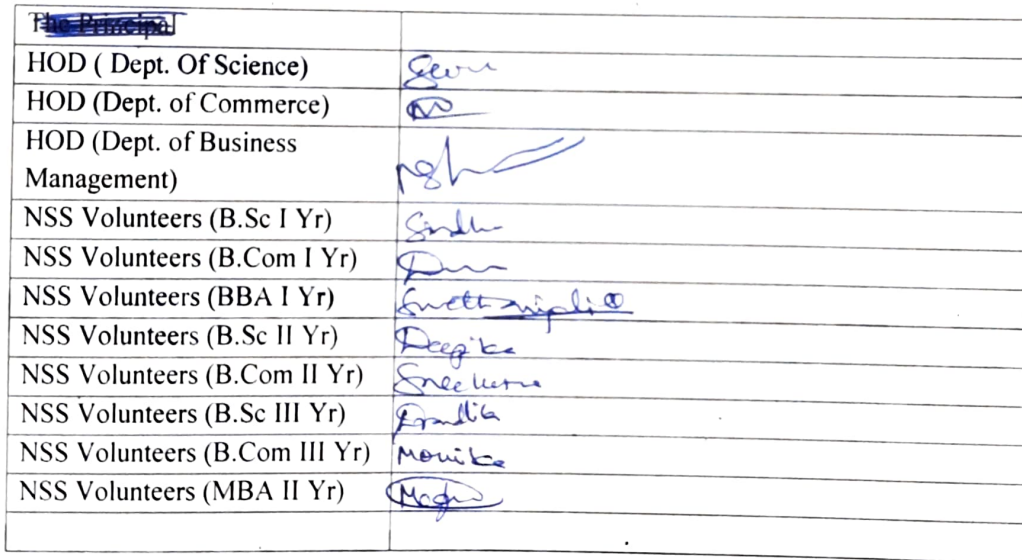 The Principal
HOD ( Dept. Of Science)
HOD (Dept. of Commerce)
HOD (Dept. of Business
Management)
NSS Volunteers (B.Sc I Yr) Sindhu
NSS Volunteers (B.Com I Yr)
NSS Volunteers (BBA I Yr)
NSS Volunteers (B.Sc II Yr) Deepika
NSS Volunteers (B.Com II Yr)
NSS Volunteers (B.Sc III Yr)
NSS Volunteers (B.Com III Yr) Mounika
NSS Volunteers (MBA II Yr)